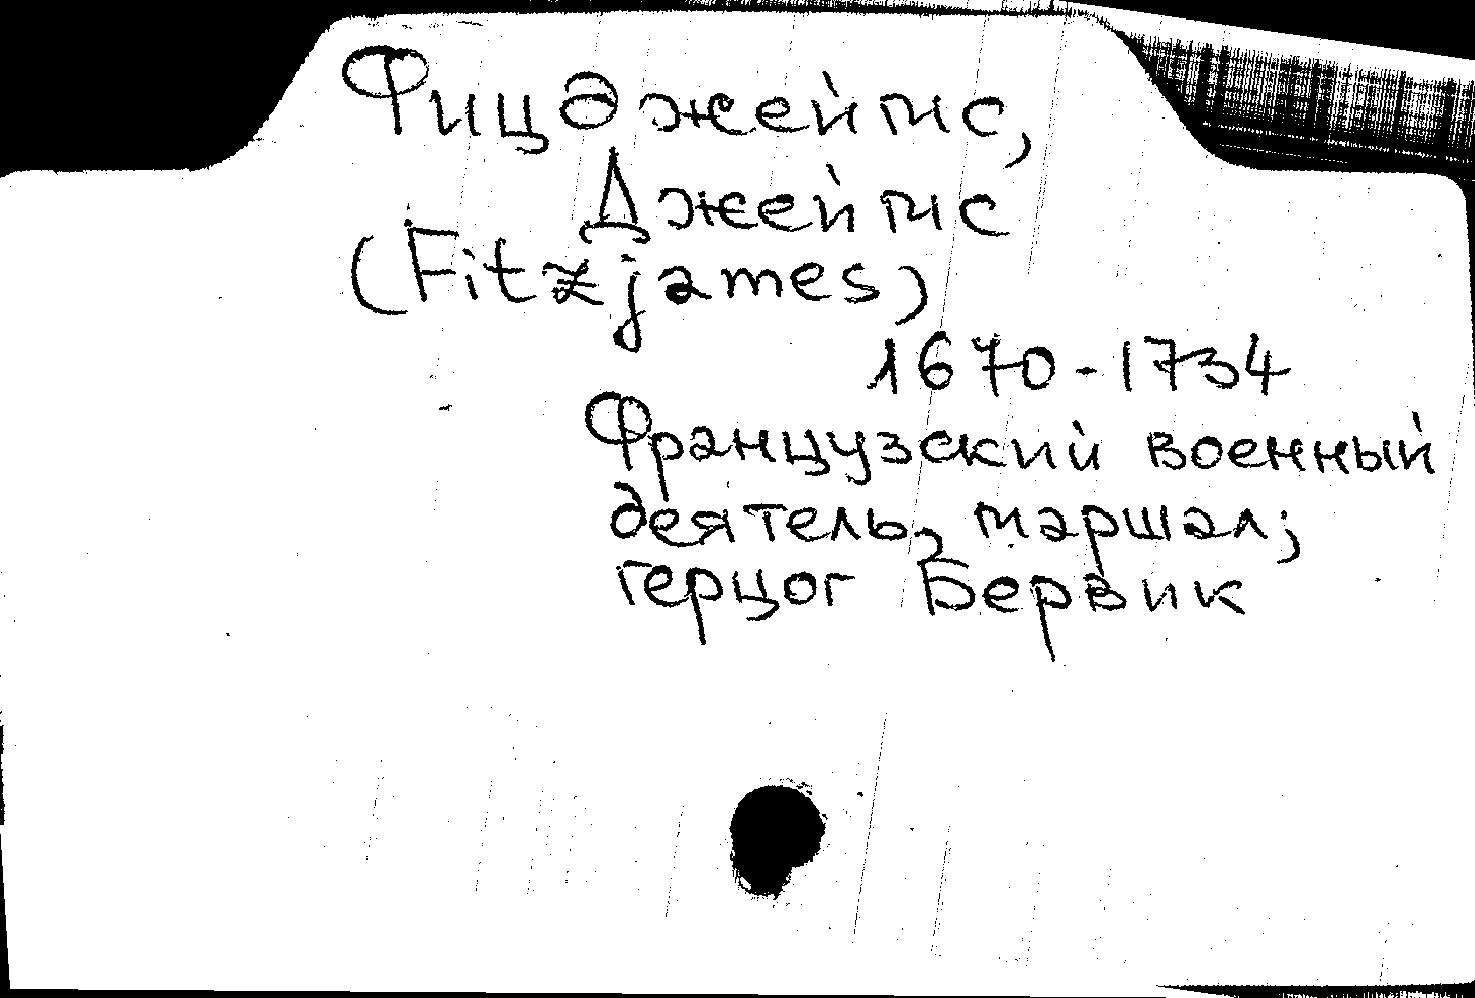 Фицджеймс,
Джеймс
(Fitzjames)
1670-1734
Французский военный
деятель, маршал;
герцог Бервик